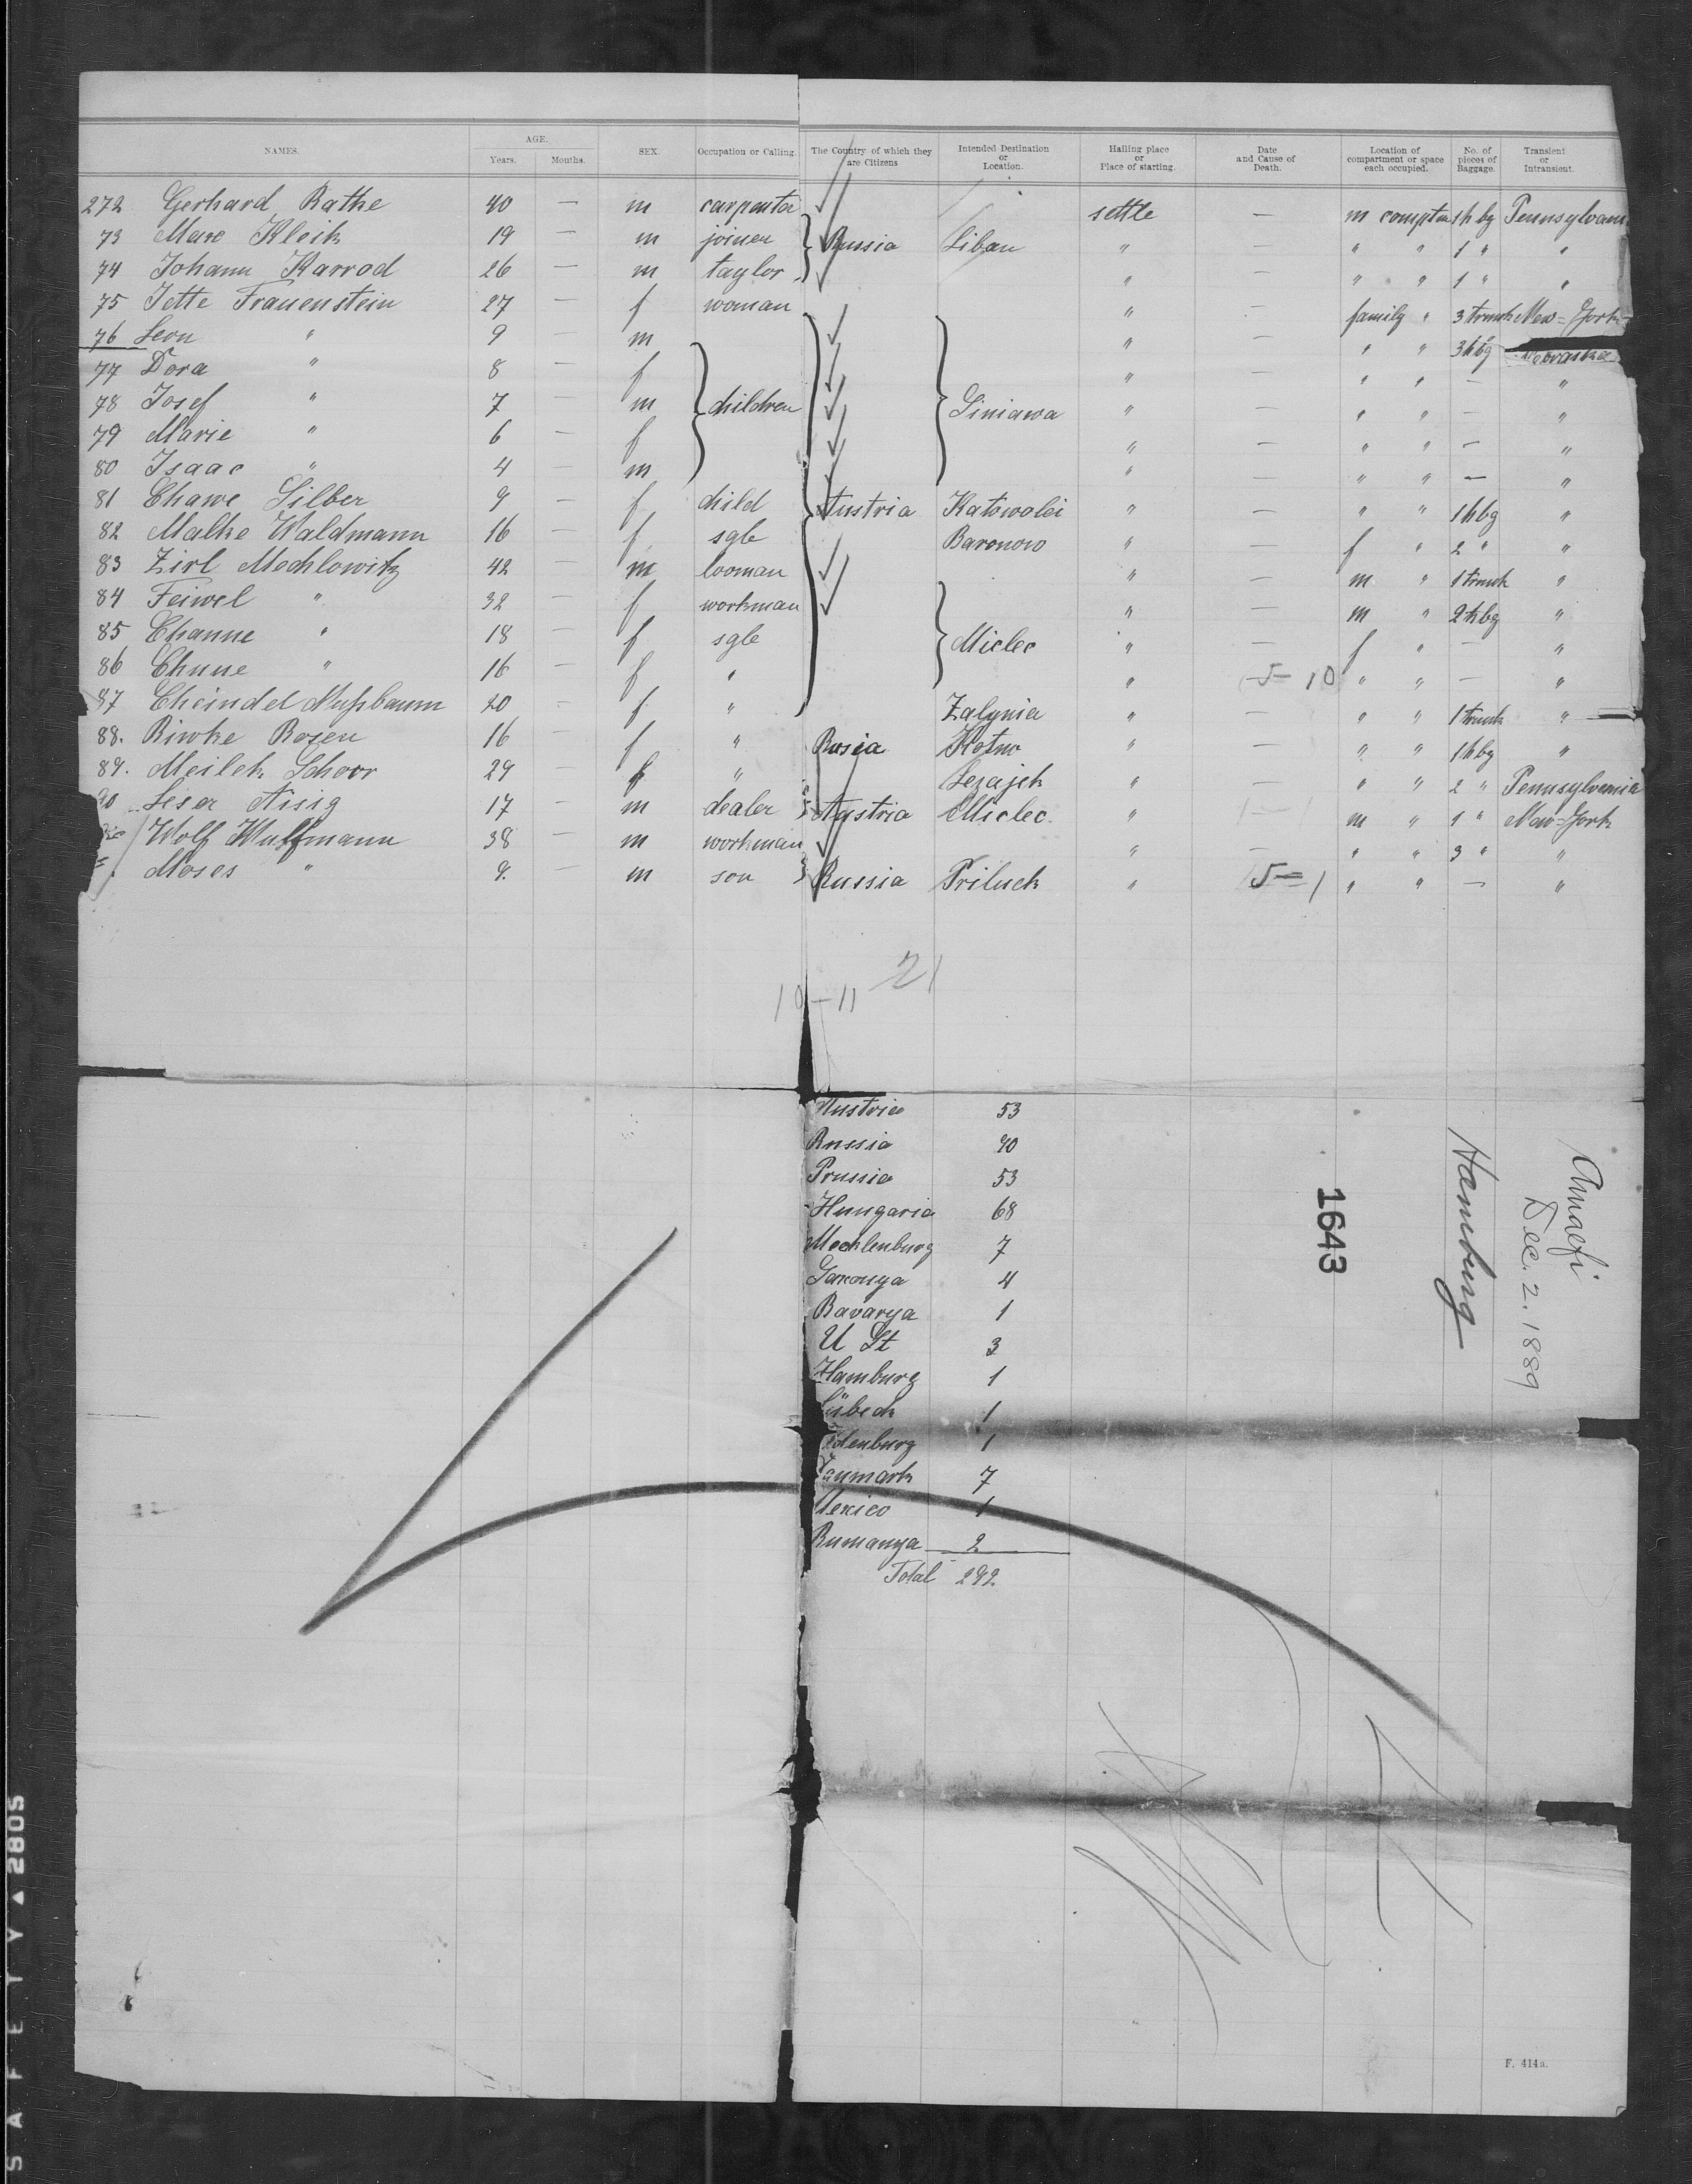 NAMES. AGE. Years. Months. SEX. Occupation or Calling. The Country of which they are Citizens Intended Destination or Location. Hailing place or Place of starting. Date and Cause of Death. Location of compartment or space each occupied. No. of pieces of Baggage. Transient or Intransient.
272 Gerhard Rathe 40 — m carpenter settle — m comptm 1 hbg Pennsylvani
73 Max Kleik 19 — m joiner Russia Libau " — " " 1 " "
74 Johann Karrod 26 — m taylor " — " " 1 " "
75 Jette Frauenstein 27 — f woman " — family " 3 trunk New-York
76 Leon " 9 — m " — " " 3 hbg
77 Dora " 8 — f " — " " — "
78 Josef " 7 — m children Siniawa " — " " — "
79 Marie " 6 — f " — " " — "
80 Isaac " 4 — m " — " " — "
81 Chawe Silber 9 — f child Austria Katowolei " — " " 1 hbg "
82 Malke Waldmann 16 — f sgle Baronow " — f " 2 " "
83 Zirl Mechlowitz 42 — m looman " — m " 1 trunk "
84 Feiwel " 32 — f workman " — m " 2 hbg "
85 Channe " 18 — f sgle Mielec " — f " — "
86 Chune " 16 — f " " 5 - 10 " " — "
87 Cheindel Nußbaum 20 — f " Zalynia " — " " 1 trunk "
88. Riwke Rosen 16 — f " Rusia Kotno " — " " 1 hbg "
89. Meilech Schorr 29 — f " Lezajek " — " " 2 " Pennsylvania
90 Leser Aisig 17 — m dealer Austria Mielec. " m " 1 " New-York
Wolf Wulfmann 38 — m workman " — " " 3 " "
Moses " 9. — m son Russia Priluck " 5 - 1 " " — "
21
10 - 11
Austria 53
Russia 90
Prussia 53
Hungaria 68
Mecklenburg 7
Saxonya 4
Bavarya 1
U St 3
Hamburg 1
Lübeck 1
Oldenburg 1
Danmark 7
Mexico 1
Rumanya 2
Total 292
1643
Hamburg
Amalfi
Dec. 2. 1889
F. 414a.
SAFETY ▲ 2805